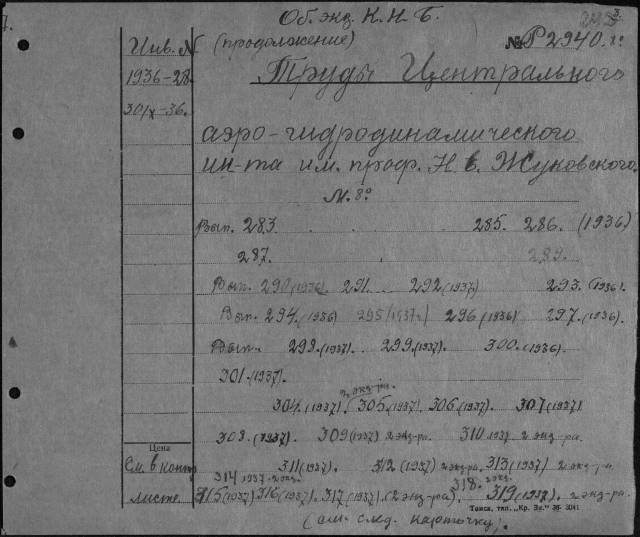 Об. экз. К.Н.Б.
Инв. N (продолжение) № Р2940. 8º
1936-28. Труды Центрального
30/X-36.
аэро-гидродинамического
ин-та им. проф. Н. Е. Жуковского.
М. 8º
Вып. 283. 285. 286. (1936)
287. 289.
Вып. 290 (1936). 291. 292 (1937) 293. (1936).
Вып. 294. (1936) 295 (1937) 296 (1936) 297. (1936).
Вып. 298. (1937). 299. (1937). 300. (1936).
301. (1937).
2 экз-ра.
304. (1937). 305. (1937). 306. (1937). 307 (1937)
308. (1937). 309 (1937) 2 экз-ра. 310 1937. 2 экз-ра.
Цена
См. в конт. 311 (1937). 312 (1937) 2 экз-ра. 313 (1937) 2 экз-ра.
314 1937. 2 экз. 318. 2 экз.
листе. 315 (1937) 316 (1937). 317 (1937). (2 экз-ра). 319 (1937). 2 экз-ра.
Томск, тип. „Кр. Зн." 36. 3041
(см. след. карточку).